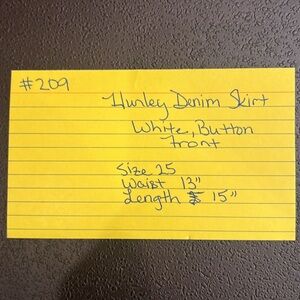 #209
Hurley Denim Skirt
White, Button
Front
Size 25
Waist 13"
Length 15"